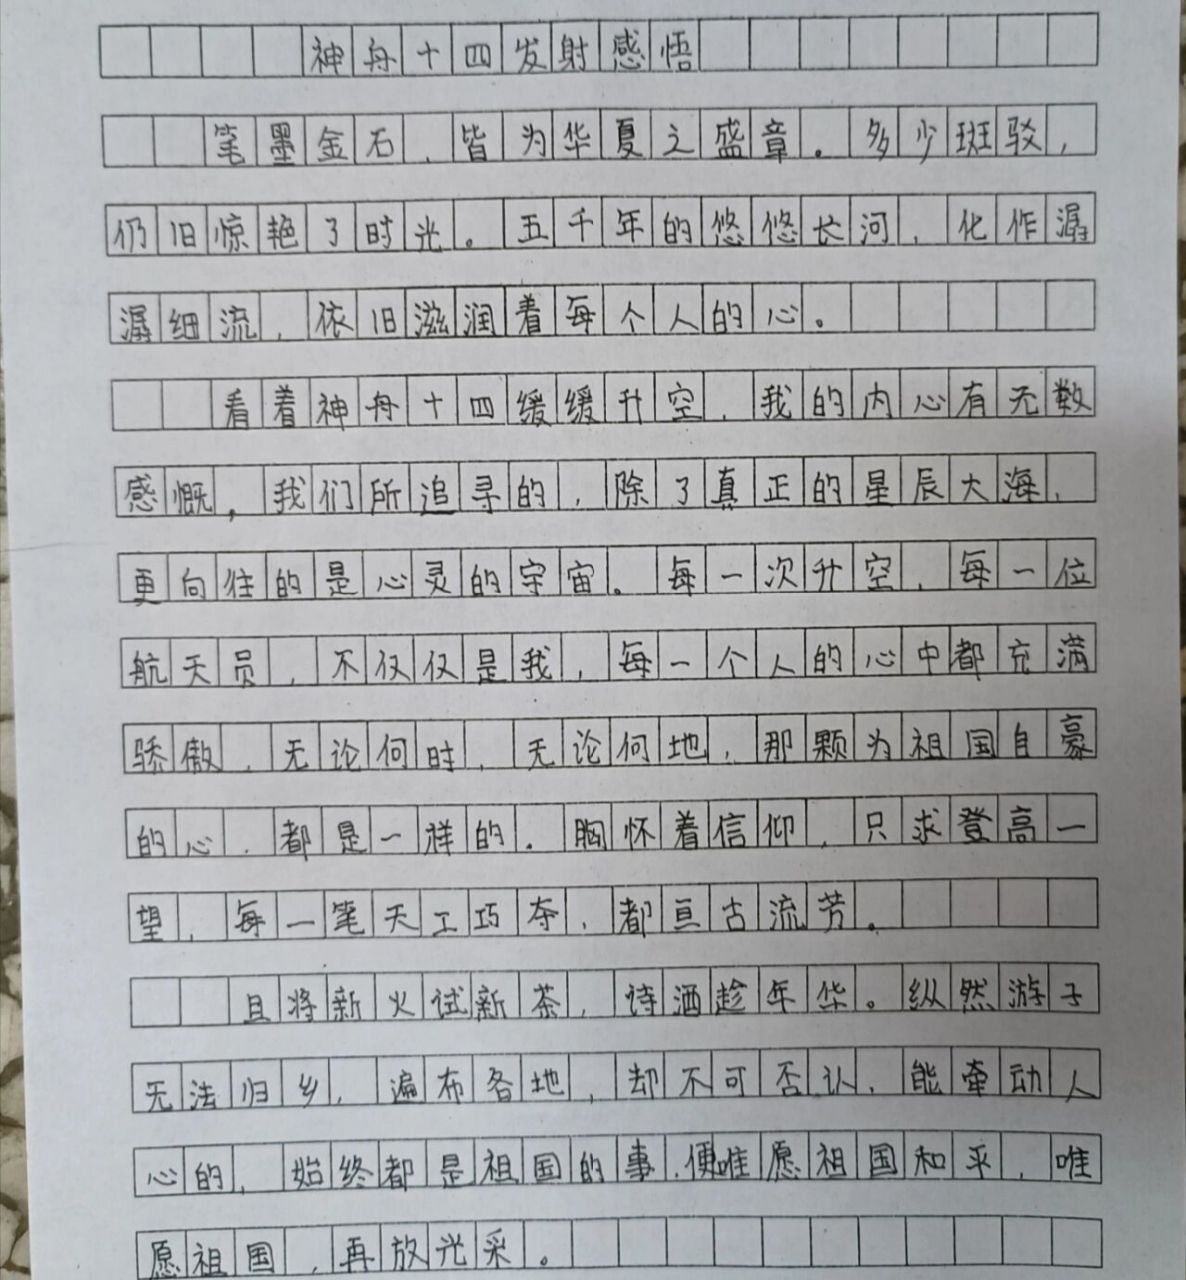 神舟十四发射感悟
笔墨金石,皆为华夏之盛章。多少斑驳,
仍旧惊艳了时光。五千年的悠悠长河,化作潺
潺细流,依旧滋润着每个人的心。
看着神舟十四缓缓升空,我的内心有无数
感慨,我们所追寻的,除了真正的星辰大海,
更向往的是心灵的宇宙。每一次升空,每一位
航天员,不仅仅是我,每一个人的心中都充满
骄傲,无论何时,无论何地,那颗为祖国自豪
的心,都是一样的.胸怀着信仰,只求登高一
望,每一笔天工巧夺,都亘古流芳。
且将新火试新茶,诗酒趁年华。纵然游子
无法归乡,遍布各地,却不可否认,能牵动人
心的,始终都是祖国的事,便唯愿祖国和平,唯
愿祖国,再放光采。